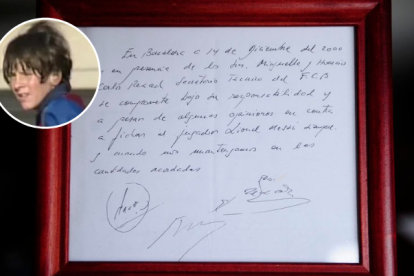 En Barcelona a 14 de Diciembre del 2000
en presencia de los Sres. Minguella y Horacio
Carles Rexach Secretario Técnico del F.C.B
Se compromete bajo su responsabilidad y
a pesar de algunas opiniones en contra
a fichar al jugador Lionel Messi siempre
y cuando nos mantengamos en las
cantidades acordadas